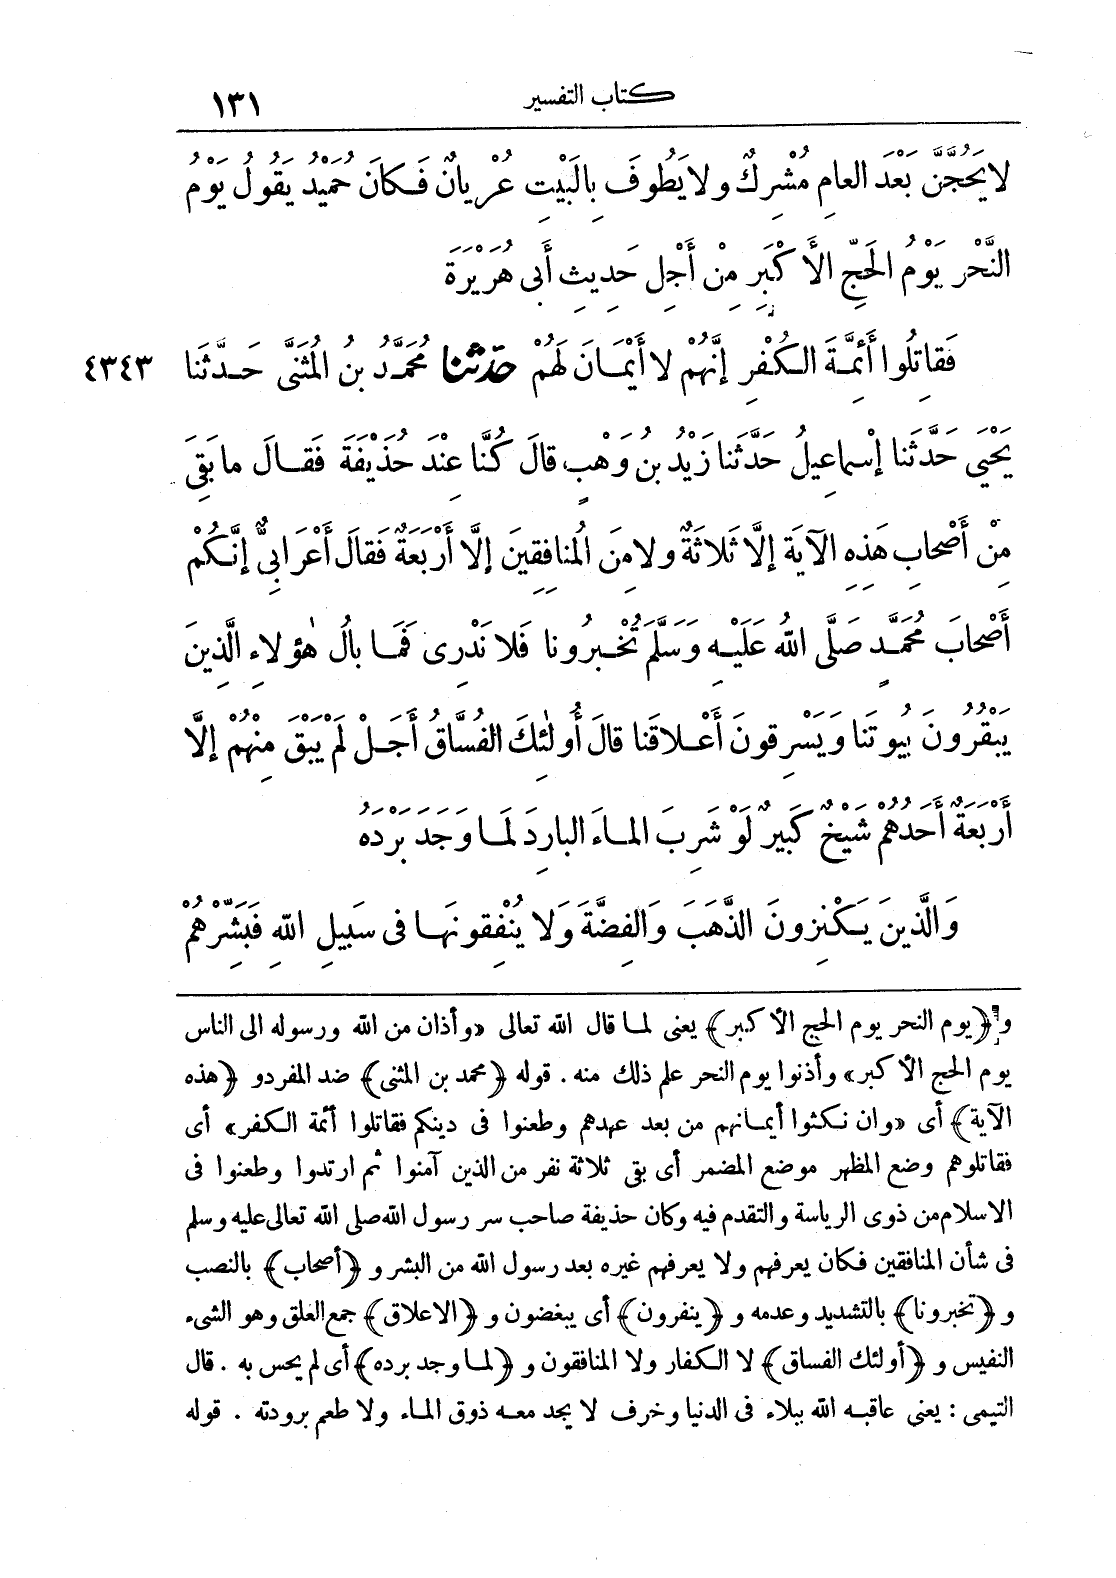 كتاب التفسير ١٣١
لا يَحُجَّنَّ بَعْدَ العامِ مُشْرِكٌ ولا يَطُوفَ بِالبَيْتِ عُرْيانٌ فَكانَ حُمَيْدٌ يَقُولُ يَوْمُ
النَّحْرِ يَوْمُ الحَجِّ الأَكْبَرِ مِنْ أَجْلِ حَدِيثِ أَبى هُرَيْرَةَ
فَقاتِلُوا أَئِمَّةَ الكُفْرِ إِنَّهُمْ لا أَيْمانَ لَهُمْ حدّثنا مُحَمَّدُ بنُ المُثَنَّى حَدَّثَنا ٤٣٤٣
يَحْيَى حَدَّثَنا إِسْماعِيلُ حَدَّثَنا زَيْدُ بنُ وَهْبٍ قالَ كُنَّا عِنْدَ حُذَيْفَةَ فَقالَ ما بَقِىَ
مِنْ أَصْحابِ هَذِهِ الآيَةِ إِلَّا ثَلاثَةٌ ولا مِنَ المُنافِقِينَ إِلَّا أَرْبَعَةٌ فَقالَ أَعْرابِىٌّ إِنَّكُمْ
أَصْحابَ مُحَمَّدٍ صَلَّى اللهُ عَلَيْهِ وَسَلَّمَ تُخْبِرُونا فَلا نَدْرِى فَمَا بالُ هٰؤُلاءِ الَّذِينَ
يَبْقُرُونَ بُيُوتَنا وَيَسْرِقُونَ أَعْلاقَنا قالَ أُولٰئِكَ الفُسَّاقُ أَجَلْ لَمْ يَبْقَ مِنْهُمْ إِلَّا
أَرْبَعَةٌ أَحَدُهُمْ شَيْخٌ كَبِيرٌ لَوْ شَرِبَ الماءَ البارِدَ لَمَا وَجَدَ بَرْدَهُ
وَالَّذِينَ يَكْنِزُونَ الذَّهَبَ وَالفِضَّةَ وَلا يُنْفِقُونَها فى سَبِيلِ اللهِ فَبَشِّرْهُمْ
و ﴿يوم النحر يوم الحج الأكبر﴾ يعنى لما قال الله تعالى «وأذان من الله ورسوله الى الناس
يوم الحج الأكبر» وأذنوا يوم النحر علم ذلك منه . قوله ﴿محمد بن المثنى﴾ ضد المفرد و ﴿هذه
الآية﴾ أى «وان نكثوا أيمانهم من بعد عهدهم وطعنوا فى دينكم فقاتلوا أئمة الكفر» أى
فقاتلوهم وضع المظهر موضع المضمر أى بقى ثلاثة نفر من الذين آمنوا ثم ارتدوا وطعنوا فى
الاسلام من ذوى الرياسة والتقدم فيه وكان حذيفة صاحب سر رسول الله صلى الله تعالى عليه وسلم
فى شأن المنافقين فكان يعرفهم ولا يعرفهم غيره بعد رسول الله من البشر و ﴿أصحاب﴾ بالنصب
و ﴿تخبرونا﴾ بالتشديد وعدمه و ﴿ينفرون﴾ أى يبغضون و ﴿الاعلاق﴾ جمع العلق وهو الشىء
النفيس و ﴿أولئك الفساق﴾ لا الكفار ولا المنافقون و ﴿لما وجد برده﴾ أى لم يحس به . قال
التيمى : يعنى عاقبه الله ببلاء فى الدنيا وخرف لا يجد معه ذوق الماء ولا طعم برودته . قوله